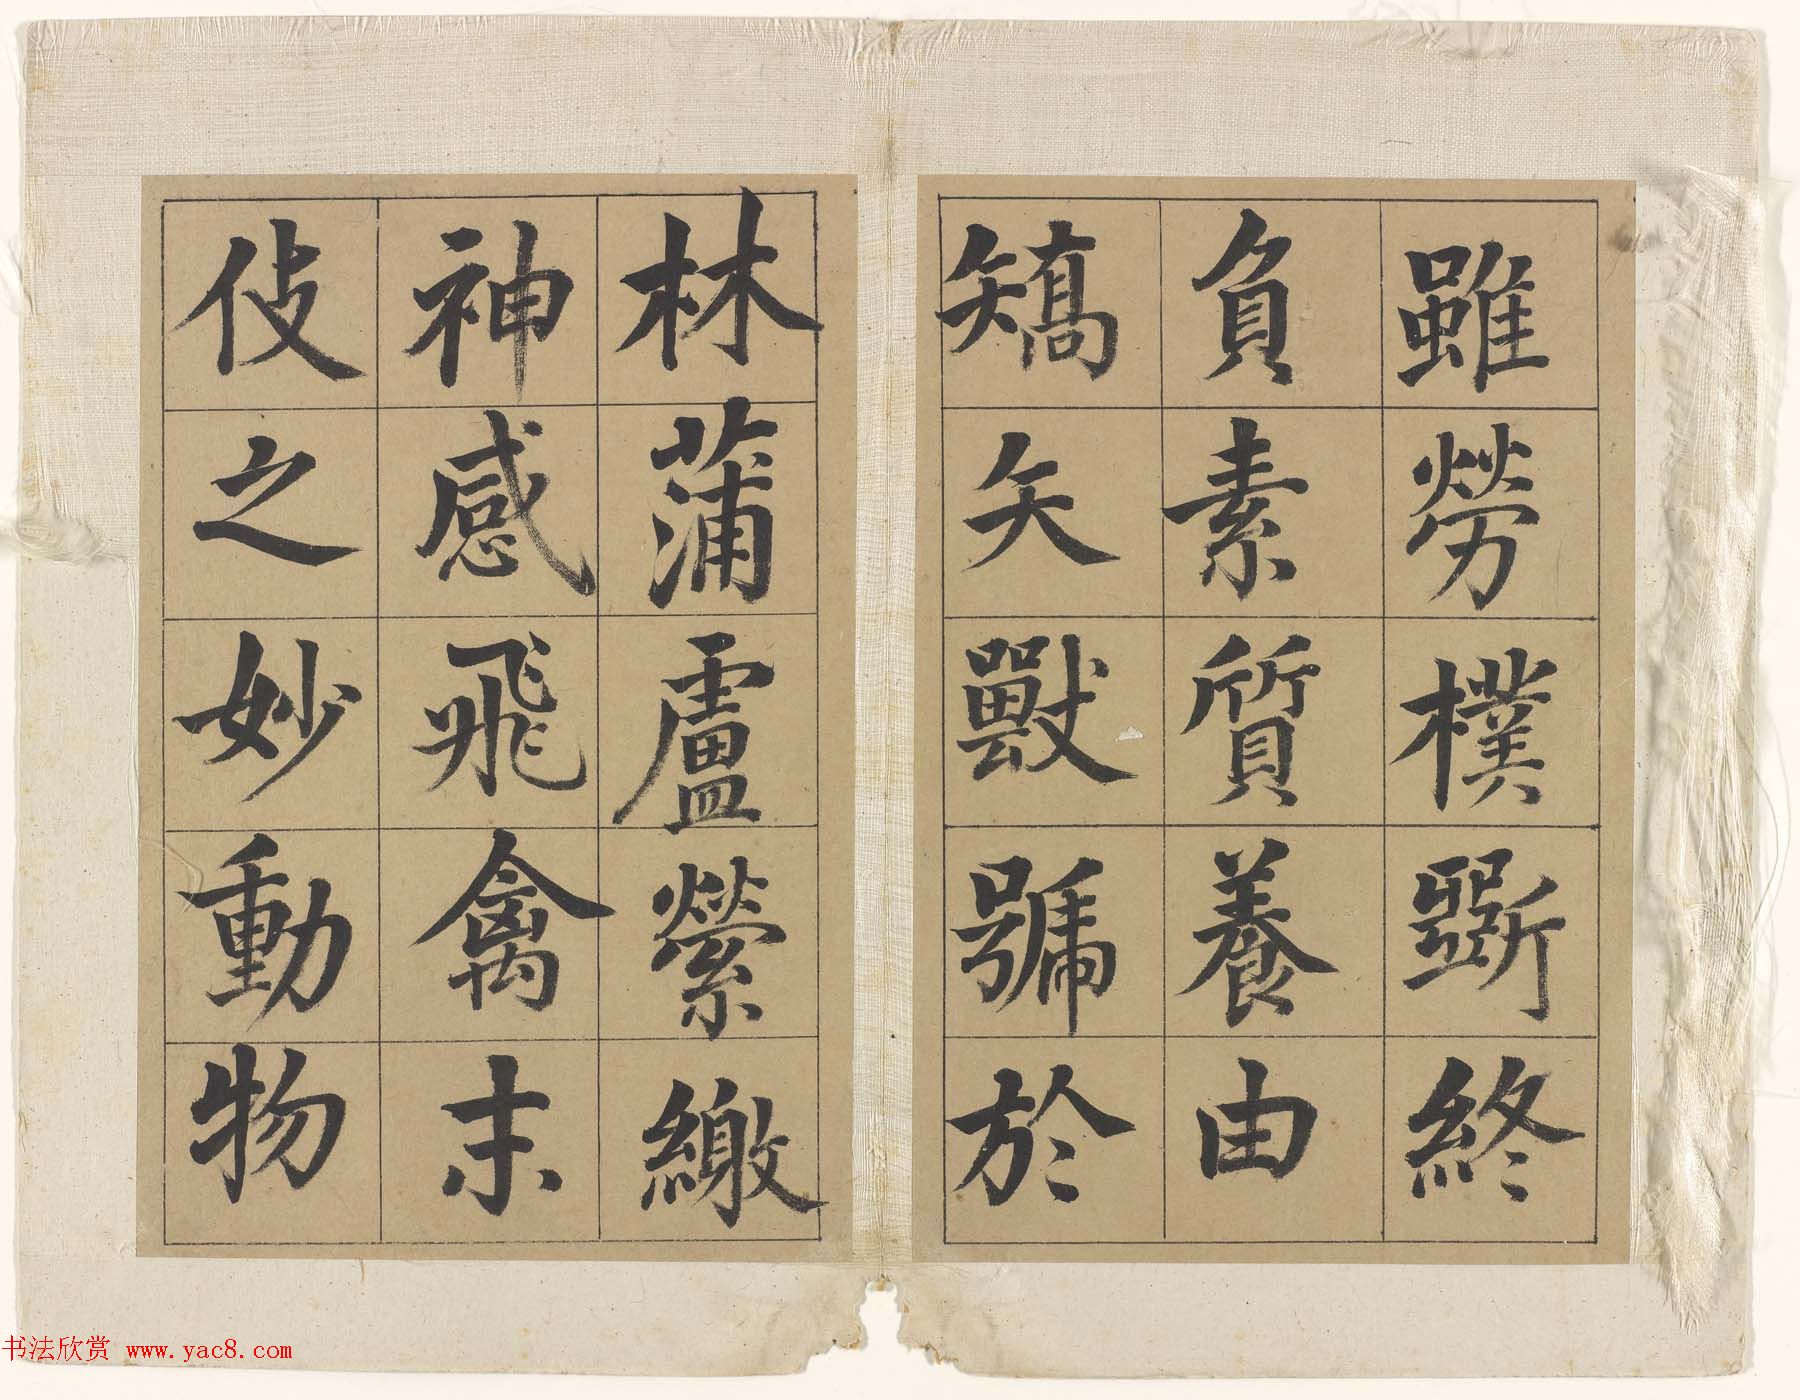 雖勞樸斲終
負素質養由
矯矢獸號於
林蒲盧縈繳
神感飛禽末
伎之妙動物
书法欣赏 www.yac8.com